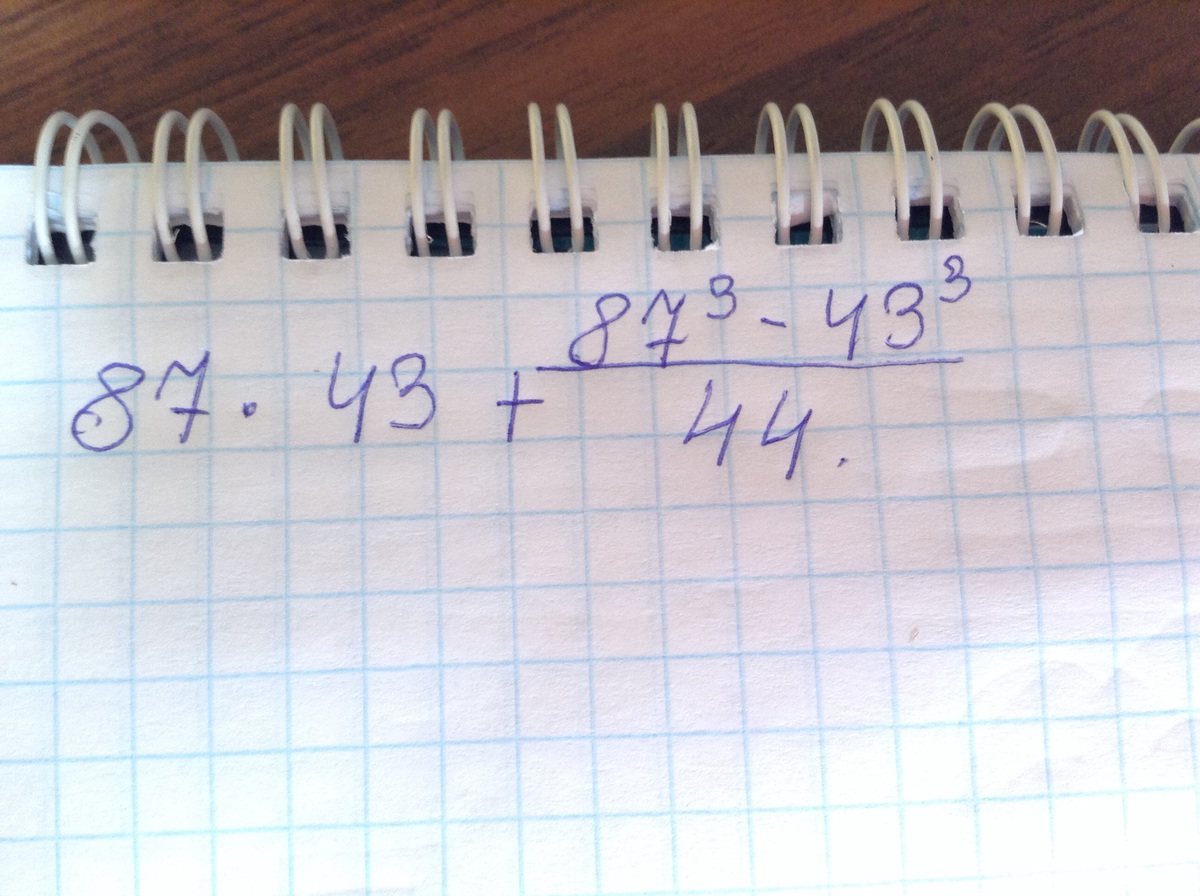 87 · 43 + \frac{87³ - 43³}{44}.